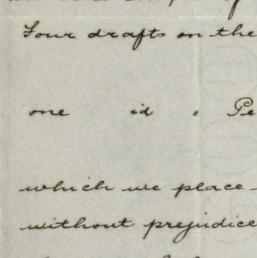 Four drafts on the
one id " Pe
which we place
without prejudice